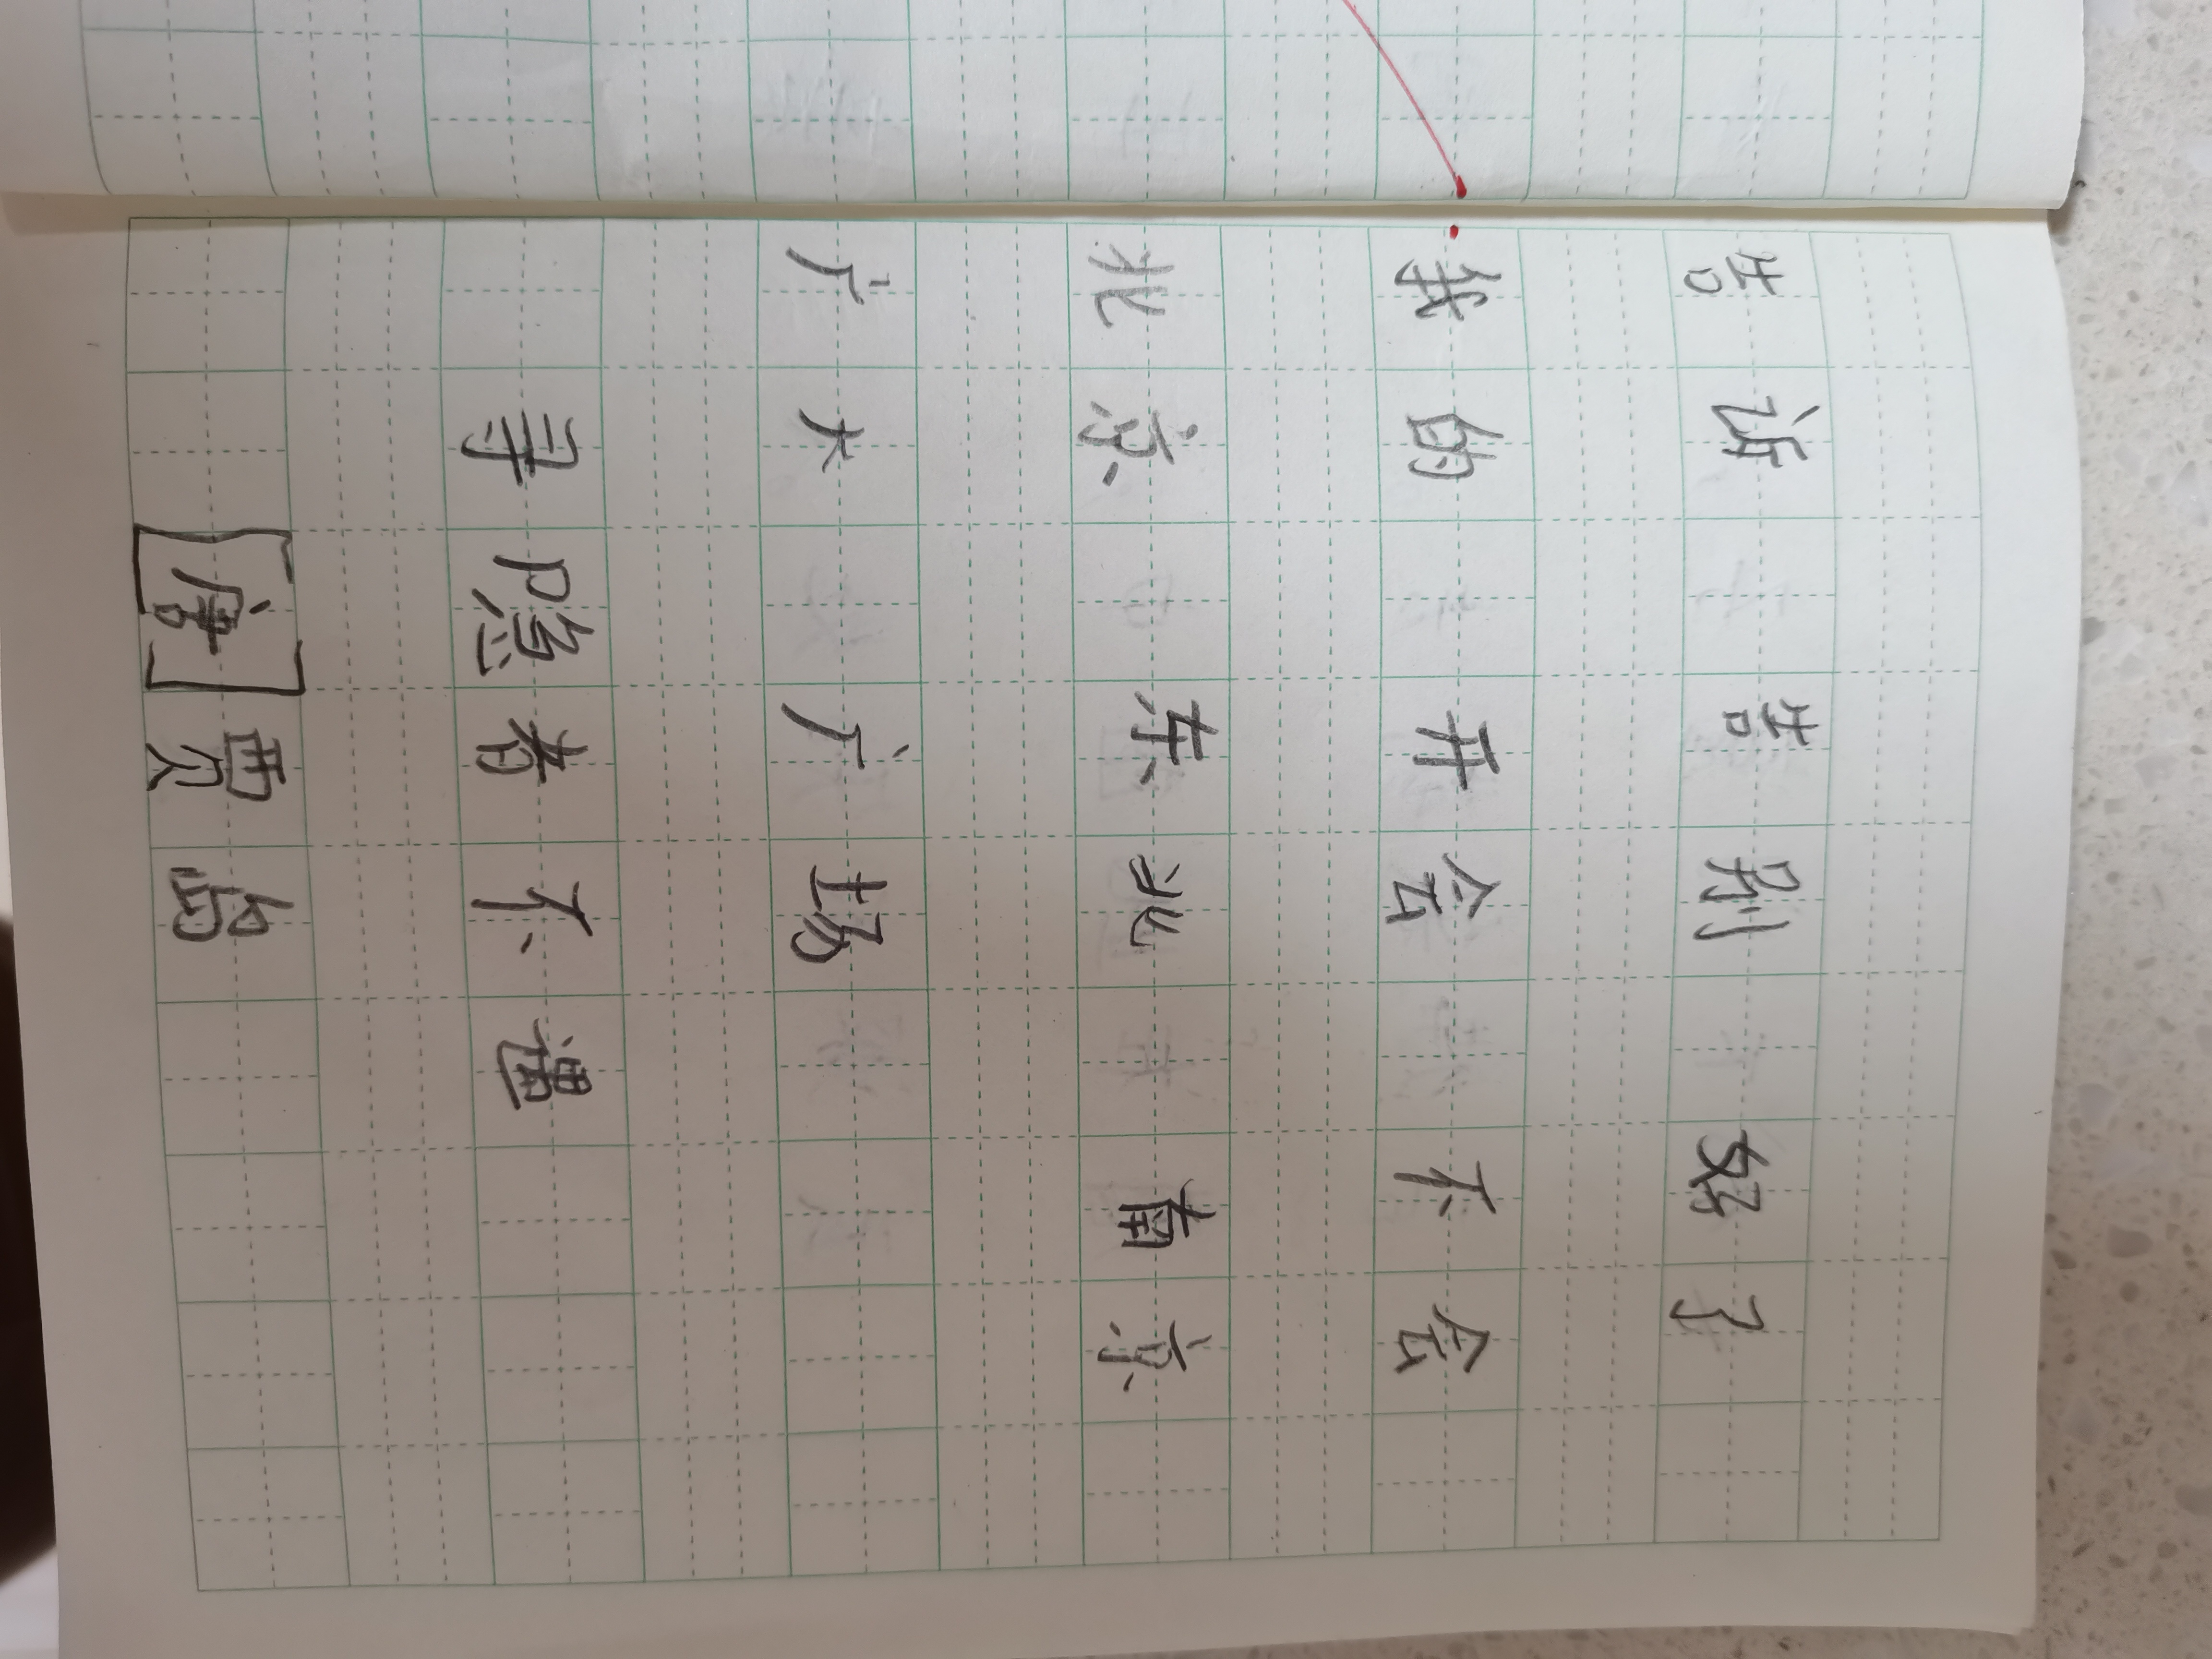 告诉 告别 好了
我的 开会 不会
北京 东北 南京
广大 广场
寻隐者不遇
[唐]贾岛